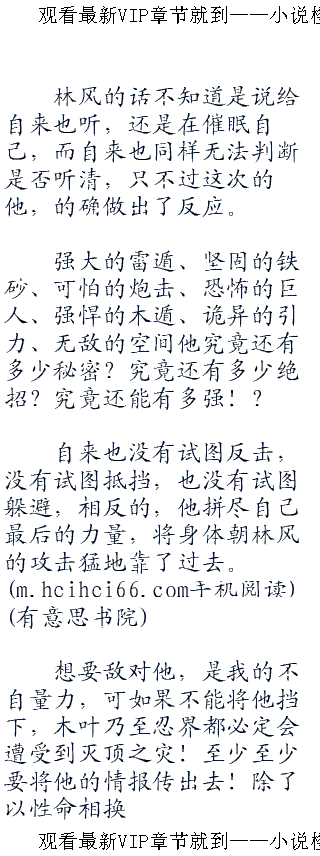 观看最新VIP章节就到——小说检
林风的话不知道是说给
自来也听，还是在催眠自
己，而自来也同样无法判断
是否听清，只不过这次的
他，的确做出了反应。
强大的雷遁、坚固的铁
砂、可怕的炮击、恐怖的巨
人、强悍的木遁、诡异的引
力、无敌的空间他究竟还有
多少秘密？究竟还有多少绝
招？究竟还能有多强！？
自来也没有试图反击，
没有试图抵挡，也没有试图
躲避，相反的，他拼尽自己
最后的力量，将身体朝林风
的攻击猛地靠了过去。
(m.hcihci66.com手机阅读)
(有意思书院)
想要敌对他，是我的不
自量力，可如果不能将他挡
下，木叶乃至忍界都必定会
遭受到灭顶之灾！至少至少
要将他的情报传出去！除了
以性命相换
观看最新VIP章节就到——小说检